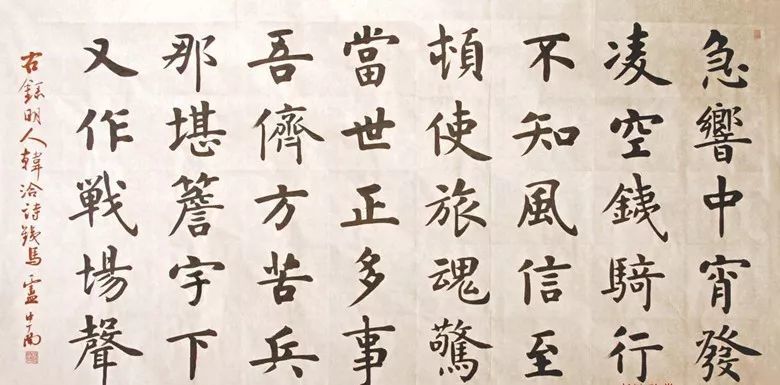 急響中宵發
凌空鉄騎行
不知風信至
頓使旅魂驚
當世正多事
吾儕方苦兵
那堪簷宇下
又作戰場聲
右錄明人韓洽詩鉄馬 盧中南